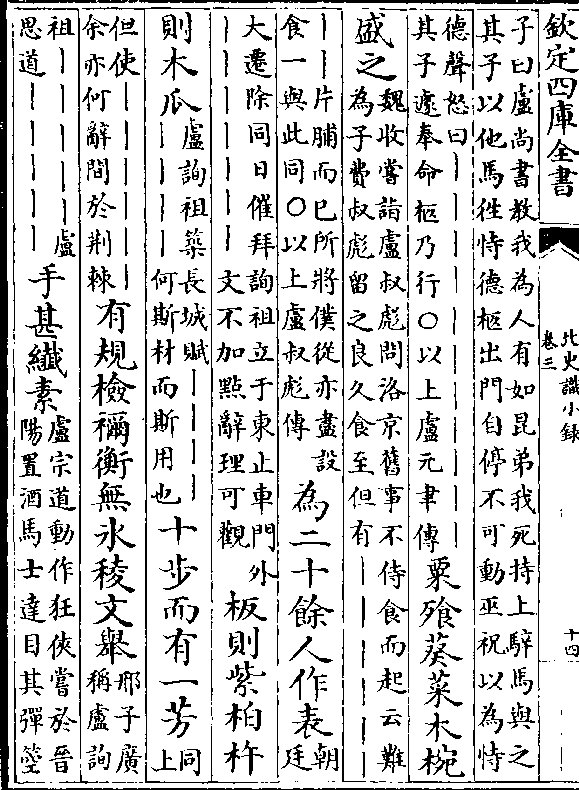 欽定四庫全書
北史識小錄
卷三
十四
子曰盧尚書教我為人有如昆弟我死持上騂馬與之
其子以他馬徃恃德柩出門自停不可動巫祝以為恃
德聲怒曰｜｜｜｜｜｜｜｜｜｜
其子遽奉命柩乃行○以上盧元聿傳
粟飱葵菜木椀
盛之
魏收嘗詣盧叔彪問洛京舊事不待食而起云難
為子費叔彪留之良久食至但有｜｜｜｜
｜｜片脯而已所將僕從亦盡設
食一與此同○以上盧叔彪傳
為二十餘人作表
朝
廷
大遷除同日催拜詢祖立于東止車門外
｜｜｜｜｜｜｜文不加點辭理可觀
板則紫柏杵
則木瓜
盧詢祖築長城賦｜｜｜｜
｜｜｜｜何斯材而斯用也
十步而有一芳
同
上
但使｜｜｜｜｜｜
余亦何辭間於荆棘
有規檢禰衡無氷稜文舉
邢子廣
稱盧詢
祖｜｜｜｜｜盧
思道｜｜｜｜｜｜
手甚纖素
盧宗道動作狂俠嘗於晉
陽置酒馬士達目其彈箜